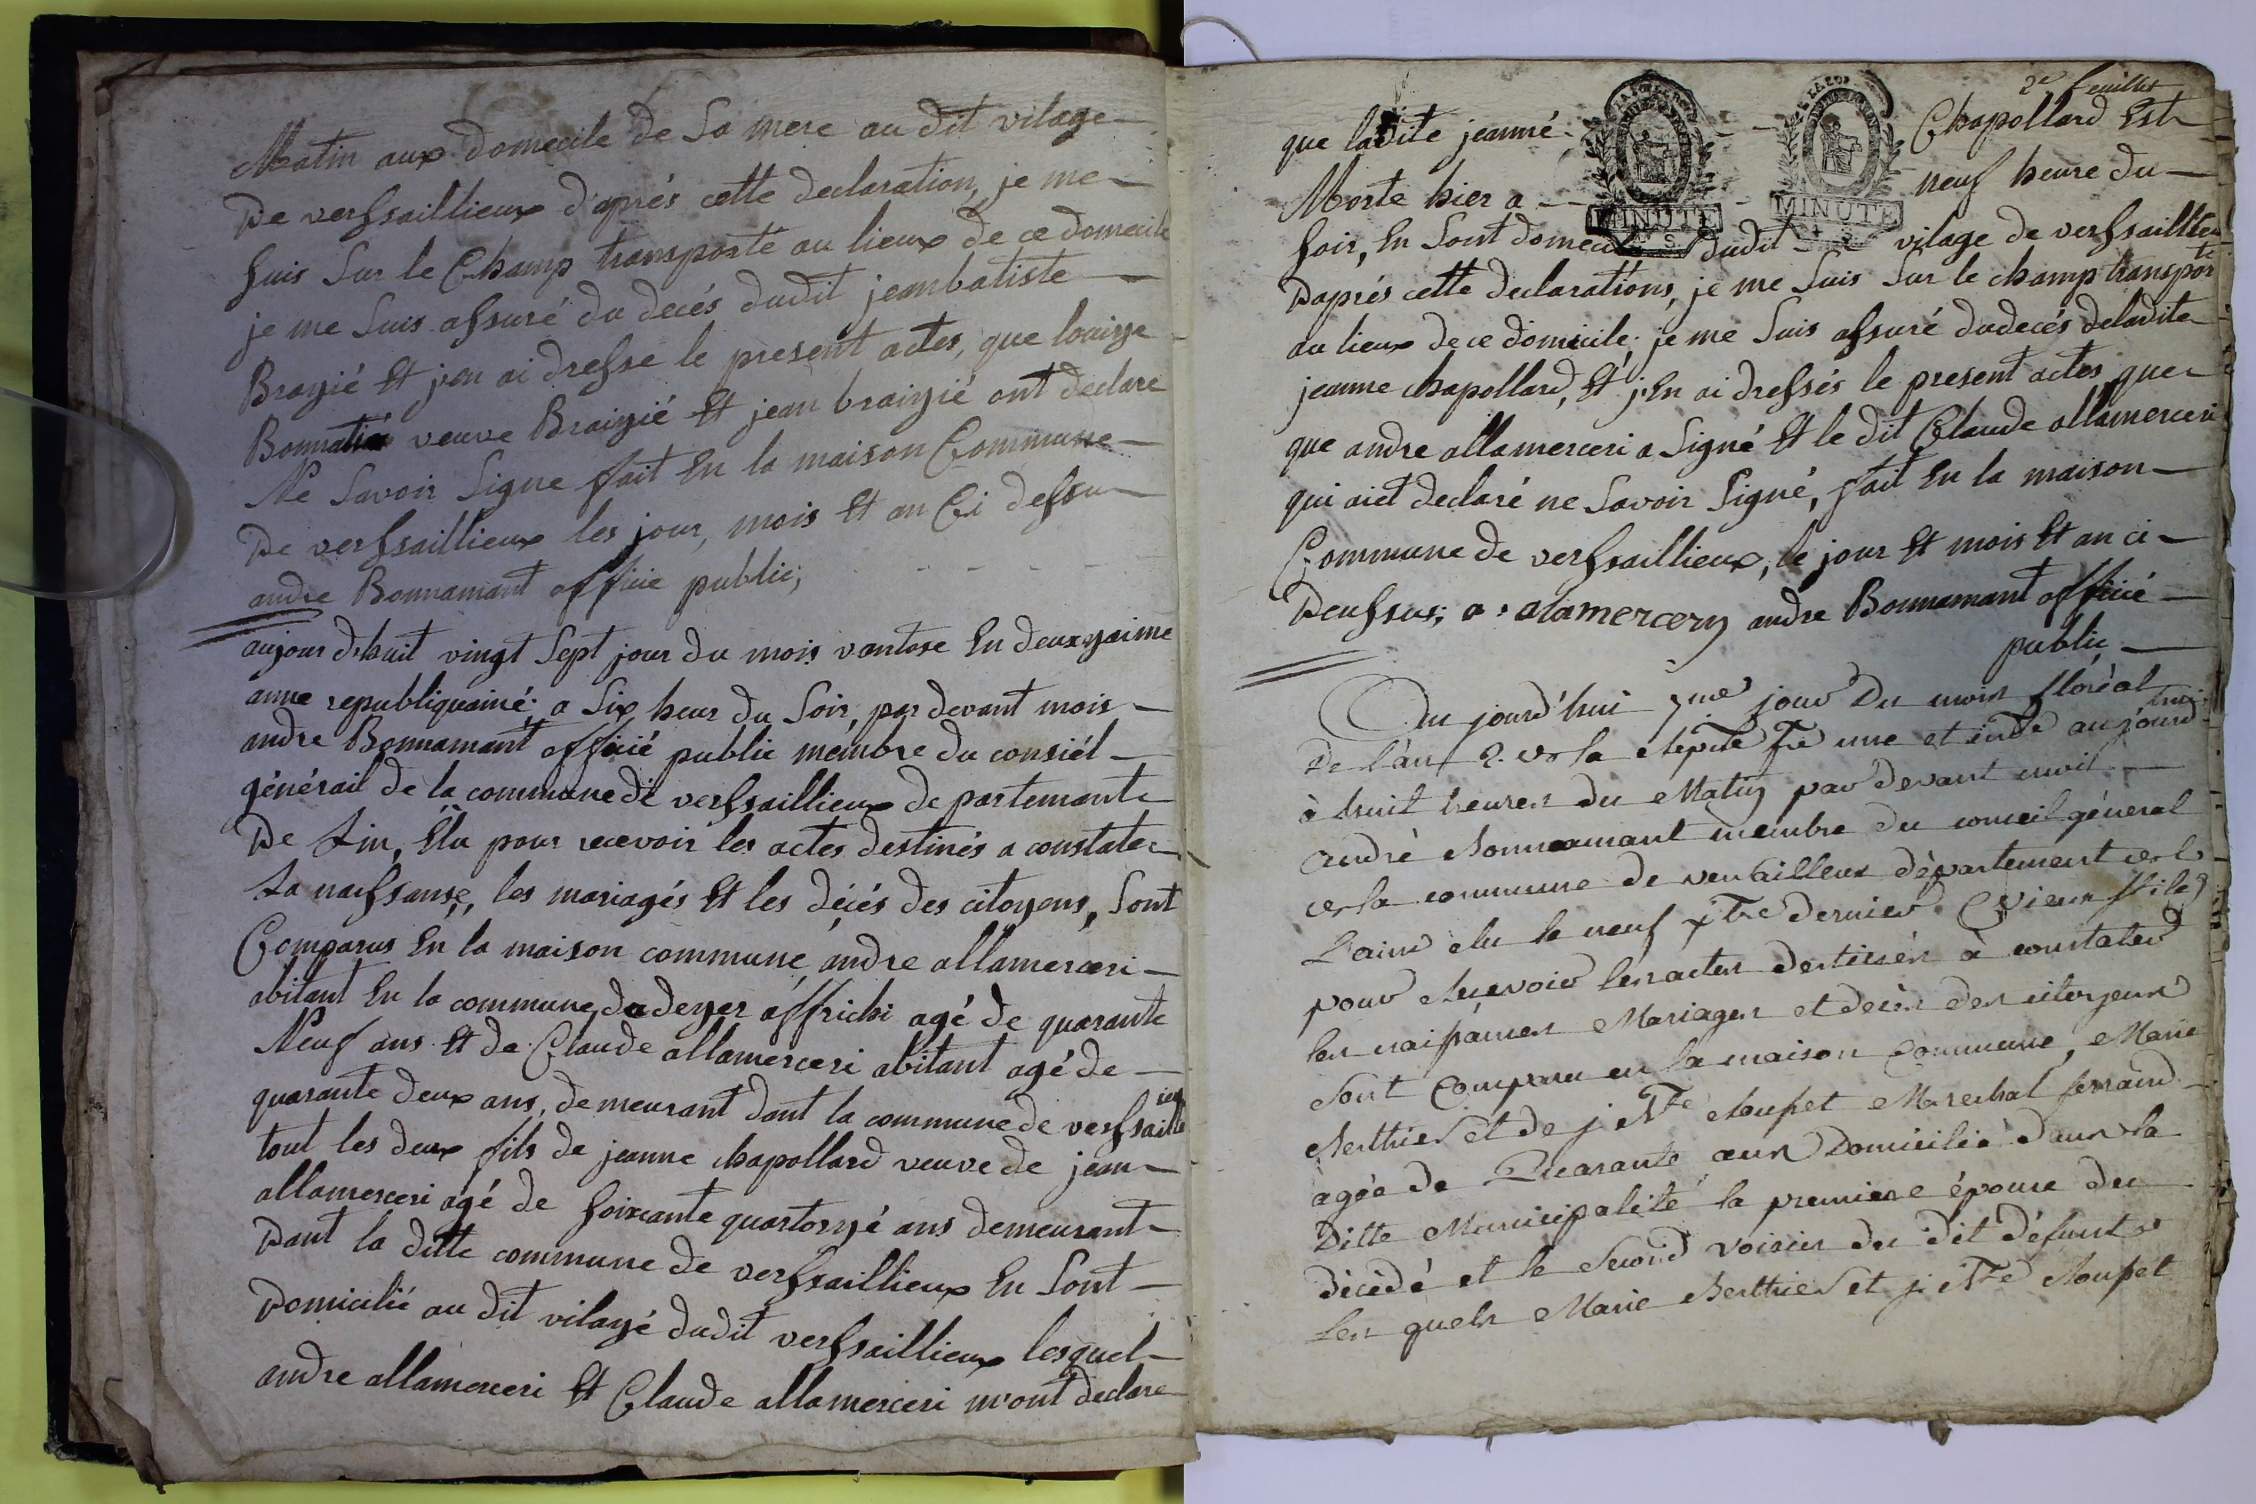 Matin aux domecile de Sa mere au dit vilage
De versaillieux d'aprés cette declaration, je me
suis Sur le Champ transporté au lieux de ce domecile
je me Suis assuré du decés dudit jeanbatiste
Brayié Et j'en ai dresse le present actes, que louise
Bonnatié veuve Braizié Et jean braizié ont declare
Ne Savoir Signe fait En la maison Commune
De versaillieux les jour, mois Et an Ci dessu
andre Bonnamant officie public,
aujourdhuit vingt Sept jour du mois vantose En deuxzaime
anne republiquainé, a Six heur du Soir, par devant mois
andre Bonnamant officié public membre du consiél
générail de la commune de versaillieux departemante
De Ain, Elu pour recevoir les actes destinés a constater
La naissanse, les mariagés Et les décés des citoyens, Sont
Comparus En la maison commune andre allamerceri
abitant En la commune, du deyer affrichi agé de quarante
Neuf ans Et de Claude allamerceri abitant agé de
quarante deux ans, demeurant dant la commune de versaillieux
tout les deux fils de jeanne chapollard veuve de jean
allamerceri agé de soixante quartorzé ans demeurant
Dant la ditte commune de versaillieux En Sont
Domicilié au dit vilagé dudit versaillieux lesquel
andre allamerceri Et Claude allamerceri m'ont declare
2e feuillet
que ladite jeanné Chapollard Est
Morte hier a neuf heure du
soir, En Sont domeci dudit vilage de versaillieu
D'aprés cette declarations, je me Suis Sur le champ transporté
au lieux de ce domicile, je me Suis assuré dudecés deladite
jeanne chapollard, Et j'En ai dressés le present actes que
que andre allamerceri a Signé Et le dit Claude allamerceri
qui aiet declaré ne Savoir Signé, fait En la maison
Commune de versaillieux, le jour Et mois Et an ci
Deussus, a : alamercery andre Bonnamant officié
public
MINUTE
MINUTE
Au jourd'hui 7me jour Du mois floréal
De l'an 2. de la Repue fse une et inde
à huit heures du Matin par devant moi
André Bonnamant membre du conseil général
de la commune de versailleux département de
L'ain élu le neuf xbre dernier (vieux stile)
pour Recevoir les actes destinés à constater
les naissances Mariages et decès des citoyens
Sont Comparu en la maison Commune, Marie
Berthier et de j. Bte Roupet Marechal ferrand
agée de Quarante ans Domiciliè dans la
Ditte Municipalité la premiere épouse du
Décédé et le Second voisin du dit défunt
Les quels Marie Berthier et j. Bte Roupet